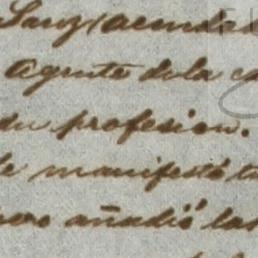 Sanz, acende
Agente de la c
su profesion.
le manifestó t
pero añadió las